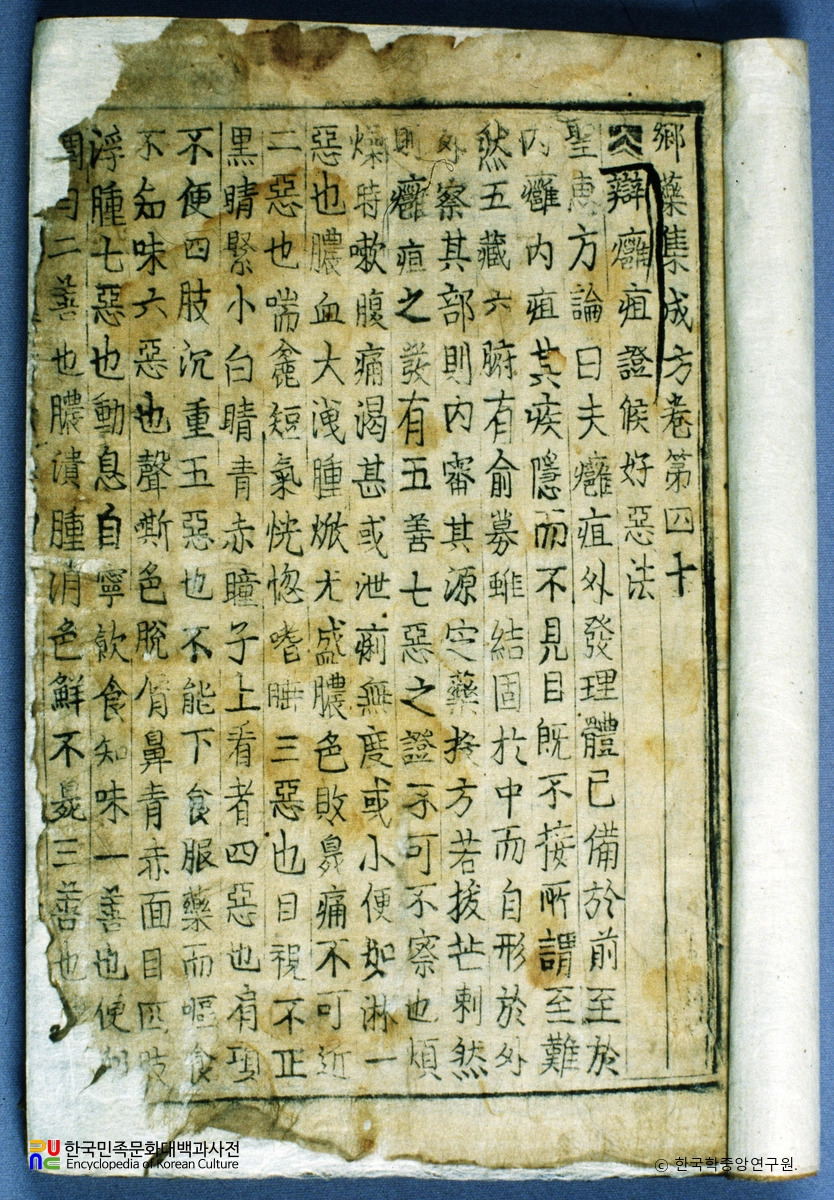 鄕藥集成方卷第四十
辯癰疽證候好惡法
聖惠方論曰夫癰疽外發理體已備於前至於
內癰內疽其疾隱而不見目旣不接所謂至難
然五藏六腑有俞募雖結固於中而自形於外
外察其部則內審其源定藥按方若拔芒刺然
則癰疽之發有五善七惡之證不可不察也煩
燥時嗽腹痛渴甚或泄痢無度或小便如淋一
惡也膿血大洩腫焮尤盛膿色敗臭痛不可近
二惡也喘麁短氣恍惚嗜睡三惡也目視不正
黑睛緊小白睛青赤瞳子上看者四惡也肩項
不便四肢沉重五惡也不能下食服藥而嘔食
不知味六惡也聲嘶色脫脣鼻青赤面目四肢
浮腫七惡也動息自寧飮食知味一善也便利
二善也膿潰腫消色鮮不臭三善也
한국민족문화대백과사전
Encyclopedia of Korean Culture
ⓒ 한국학중앙연구원.